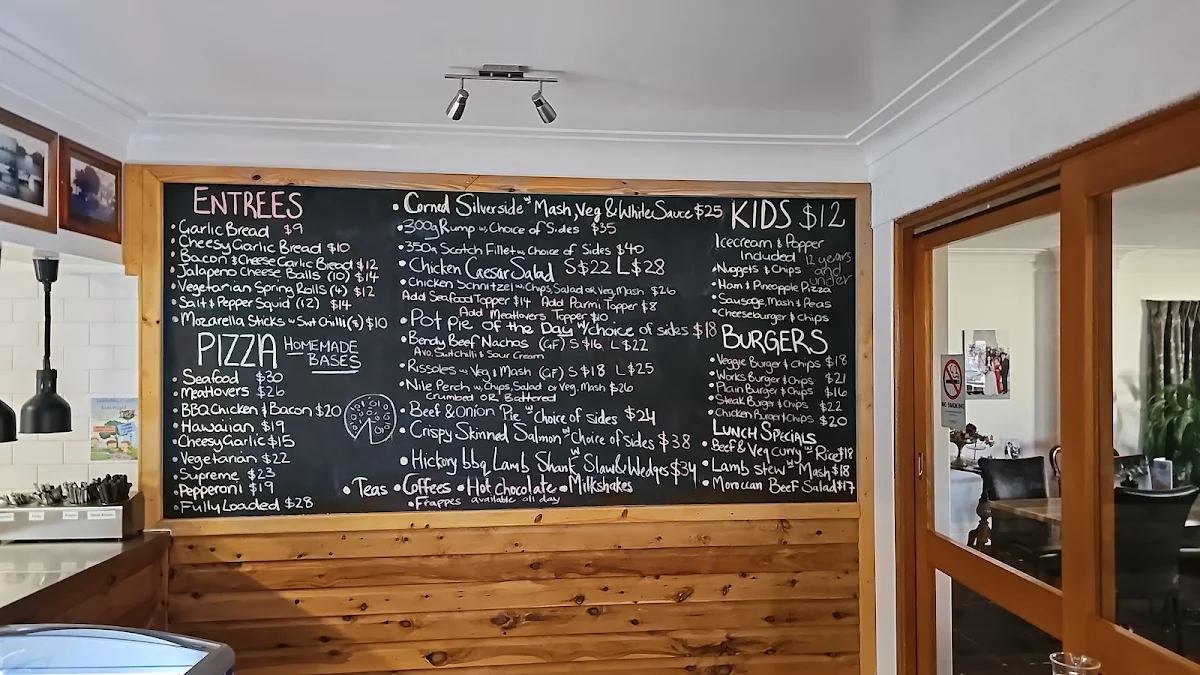 ENTREES
• Garlic Bread $9
• Cheesy Garlic Bread $10
• Bacon & Cheese Garlic Bread $12
• Jalapeno Cheese Balls (10) $14
• Vegetarian Spring Rolls (4) $12
• Salt & Pepper Squid (12) $14
• Mozarella Sticks w Swt Chilli $10
PIZZA HOMEMADE
BASES
• Seafood $30
• Meatlovers $26
• BBQ Chicken & Bacon $20
• Hawaiian $19
• Cheesy Garlic $15
• Vegetarian $22
• Supreme $23
• Pepperoni $19
• Fully Loaded $28
• Corned Silverside w Mash, Veg & White Sauce $25
• 300g Rump w. Choice of Sides $35
• 350g Scotch Fillet w. Choice of Sides $40
• Chicken Caesar Salad S $22 L $28
• Chicken Schnitzel w. Chips, Salad or Veg, Mash $26
Add Seafood Topper $14 Add Parmi Topper $8
Add Meatlovers Topper $10
• Pot Pie of the Day w/choice of sides $18
• Bendy Beef Nachos (GF) S $16 L $22
Avo, Swt Chilli & Sour Cream
• Rissoles w Veg & Mash (GF) S $18 L $25
• Nile Perch w. Chips, Salad or Veg, Mash $26
Crumbed OR Battered
• Beef & Onion Pie w choice of sides $24
• Crispy Skinned Salmon w Choice of sides $38
• Hickory bbq Lamb Shank w Slaw & Wedges $34
• Teas • Coffees • Hot chocolate • Milkshakes
• Frappes available all day
KIDS $12
Icecream & Topper
Included 12 years
and
under
• Nuggets & Chips
• Ham & Pineapple Pizza
• Sausage, Mash & Peas
• Cheeseburger & Chips
BURGERS
• Veggie Burger & Chips $18
• Works Burger & Chips $21
• Plain Burger & Chips $16
• Steak Burger & Chips $22
• Chicken Burger & Chips $20
LUNCH SPECIALS
• Beef & Veg curry w Rice $18
• Lamb stew w Mash $18
• Moroccan Beef Salad $17
NO SMOKING